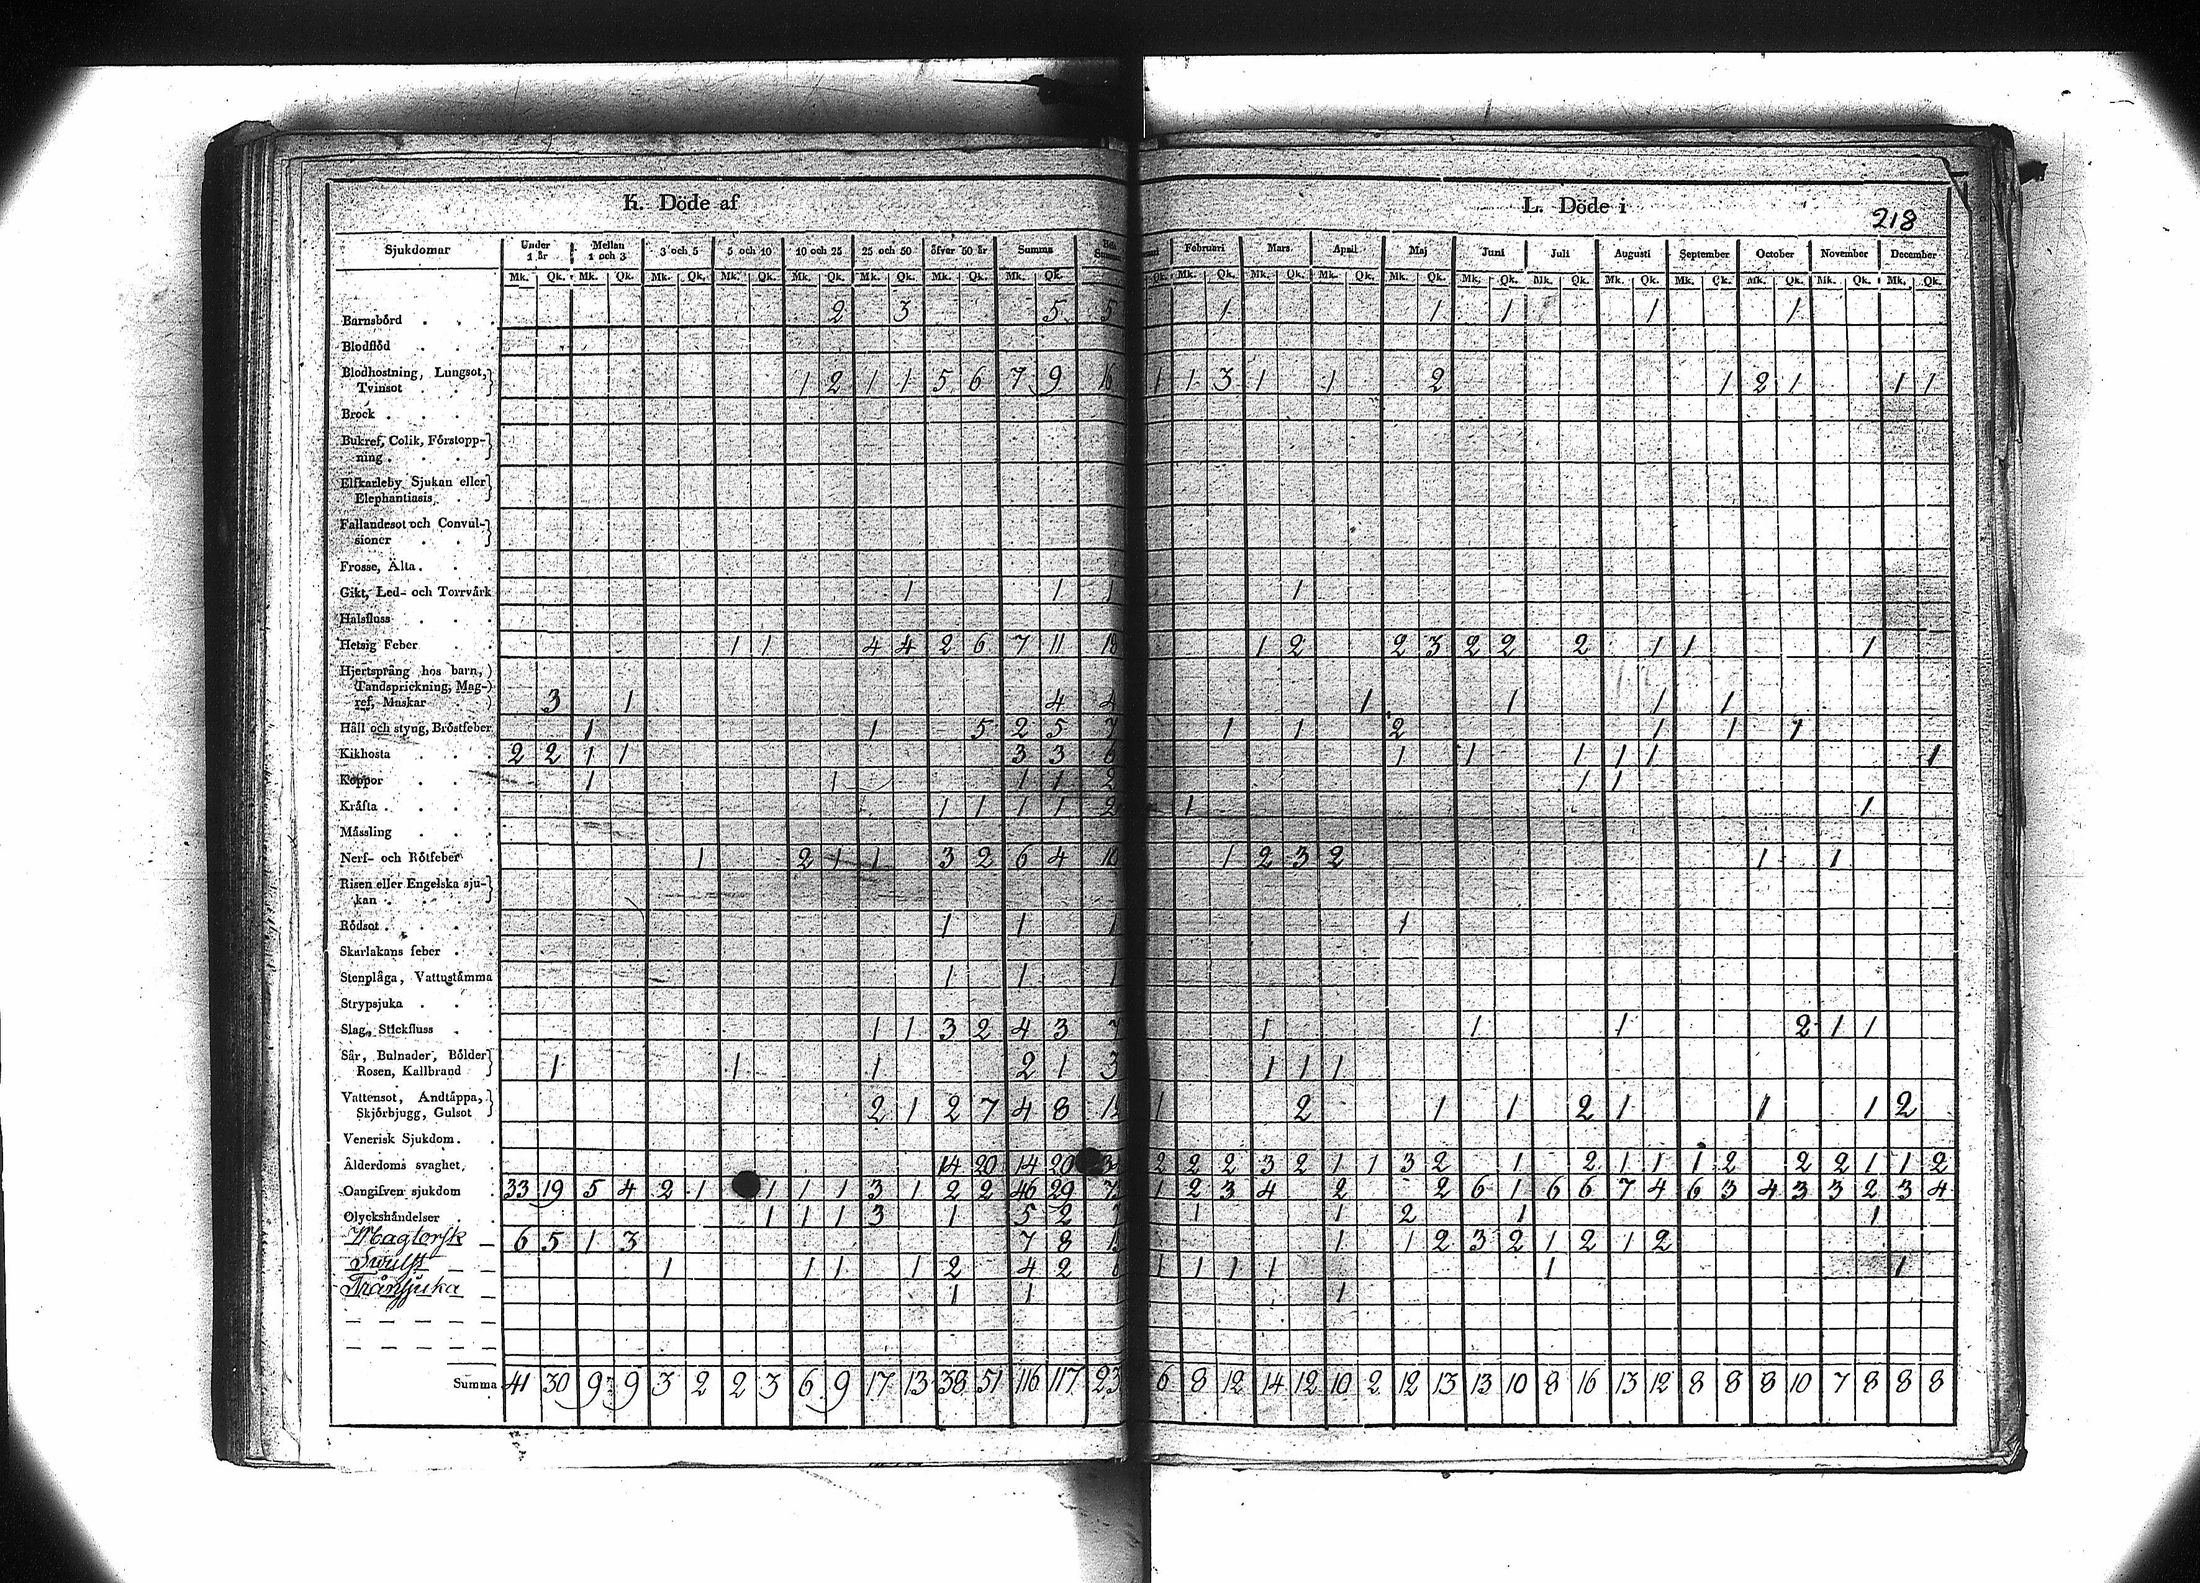 K. Döde af
L. Döde i
218
Sjukdomar Under 1 år Mellan 1 och 3 3 och 5 5 och 10 10 och 25 25 och 50 öfver 50 år Summa Februari Mars April Maj Juni Juli Augusti September October November December
Mk. Qk. Mk. Qk. Mk. Qk. Mk. Qk. Mk. Qk. Mk. Qk. Mk. Qk. Mk. Qk. Qk. Mk. Qk. Mk. Qk. Mk. Qk. Mk. Qk. Mk. Qk. Mk. Qk. Mk. Qk. Mk. Qk. Mk. Qk. Mk. Qk. Mk. Qk.
Barnsbörd 2 3 5 5 1 1 1 1 1
Blodflöd
Blodhostning, Lungsot,
Tvinsot 1 2 1 1 5 6 7 9 16 1 1 3 1 1 2 1 2 1 1 1
Brock
Bukref, Colik, Förstopp-
ning
Elfkarleby Sjukan eller
Elephantiasis
Fallandesot och Convul-
sioner
Frosse, Älta
Gikt, Led- och Torrvärk 1 1 1 1
Halsfluss
Hetsig Feber 1 1 4 4 2 6 7 11 18 1 2 2 3 2 2 2 1 1 1
Hjertsprång hos barn,
Tandsprickning, Mag-
ref, Maskar 3 1 4 4 1 1 1 1
Håll och styng, Bröstfeber 1 1 5 2 5 7 1 1 2 1 1 1
Kikhosta 2 2 1 1 3 3 6 1 1 1 1 1 1
Koppor 1 1 1 1 2 1 1
Kräfta 1 1 1 1 2 1 1
Mässling
Nerf- och Rötfeber 1 2 1 1 3 2 6 4 10 1 2 3 2 1 1
Risen eller Engelska sju-
kan
Rödsot 1 1 1 1
Skarlakans feber
Stenplåga, Vattustämma 1 1 1
Strypsjuka
Slag, Stickfluss 1 1 3 2 4 3 7 1 1 1 2 1 1
Sår, Bulnader, Bölder
Rosen, Kallbrand 1 1 1 2 1 3 1 1 1
Vattensot, Andtäppa,
Skjörbjugg, Gulsot 2 1 2 7 4 8 12 1 2 1 1 2 1 1 1 2
Venerisk Sjukdom
Ålderdoms svaghet 14 20 14 20 34 2 2 2 3 2 1 1 3 2 1 2 1 1 1 2 2 2 1 1 2
Oangifven sjukdom 33 19 5 4 2 1 1 1 1 3 1 2 2 46 29 1 2 3 4 2 2 6 1 6 6 7 4 6 3 4 3 3 2 3 4
Olyckshändelser 1 1 1 3 1 5 2 7 1 1 2 1 1
6 5 1 3 7 8 1 1 2 3 2 1 2 1 2
1 1 1 1 2 4 2 6 1 1 1 1 1 1
Trånsjuka 1 1 1
Summa 41 30 9 9 3 2 2 3 6 9 17 13 38 51 116 117 23 6 8 12 14 12 10 2 12 13 13 10 8 16 13 12 8 8 8 10 7 8 8 8